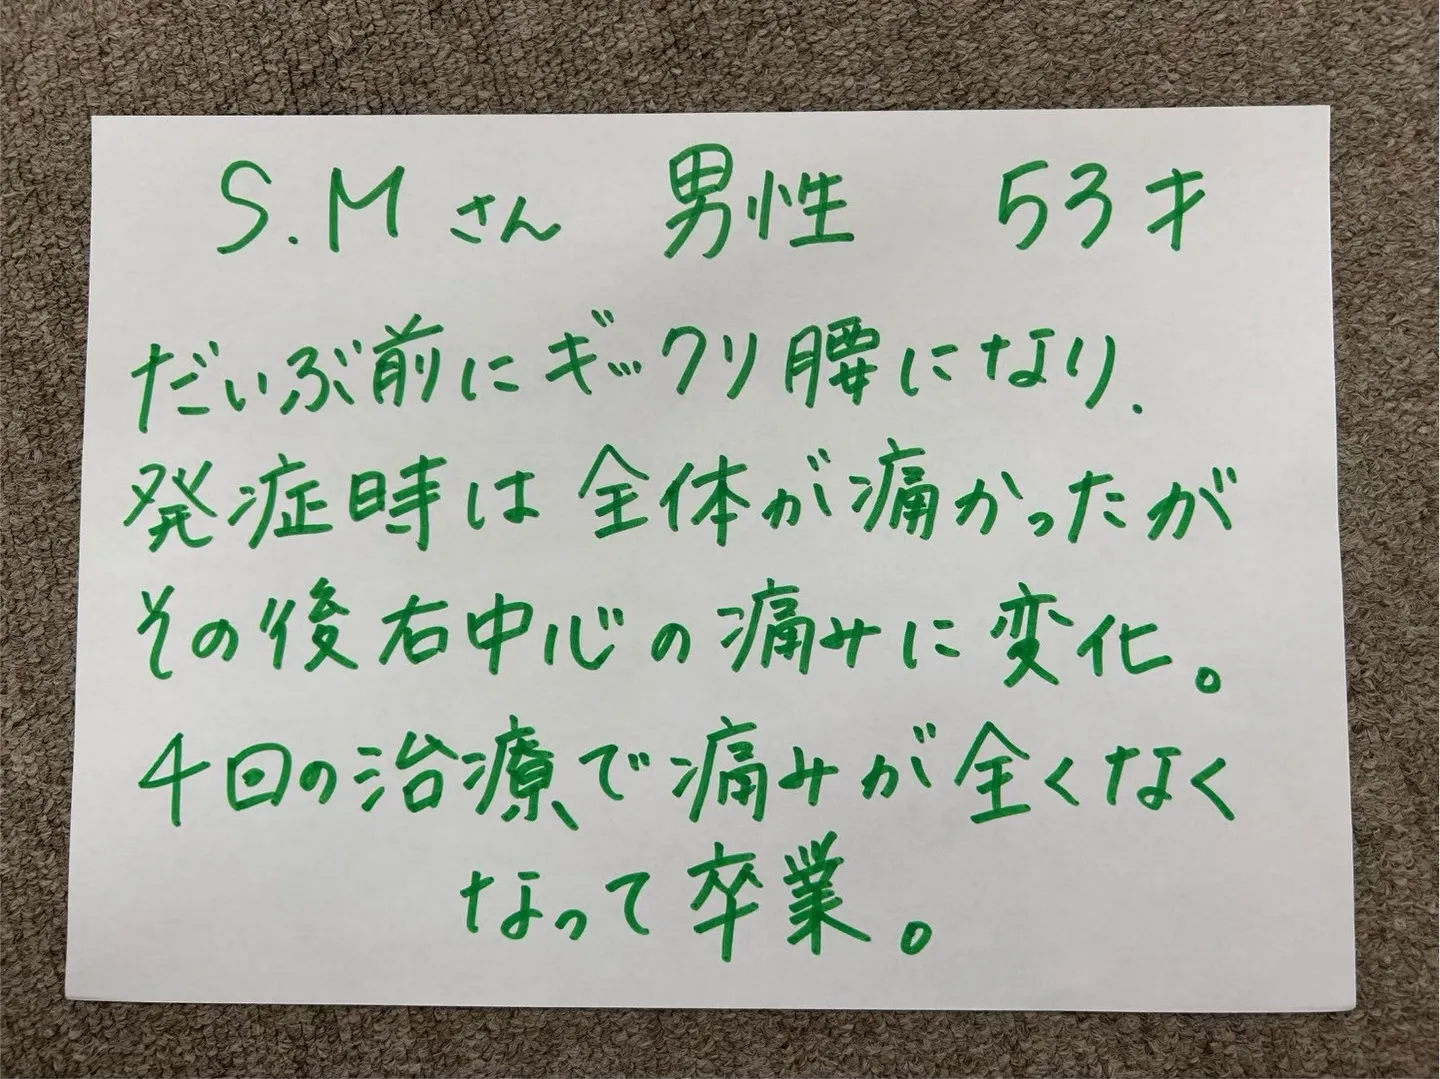 S.Mさん 男性 53才
だいぶ前にギックリ腰になり、
発症時は全体が痛かったが
その後右中心の痛みに変化。
4回の治療で痛みが全くなく
なって卒業。